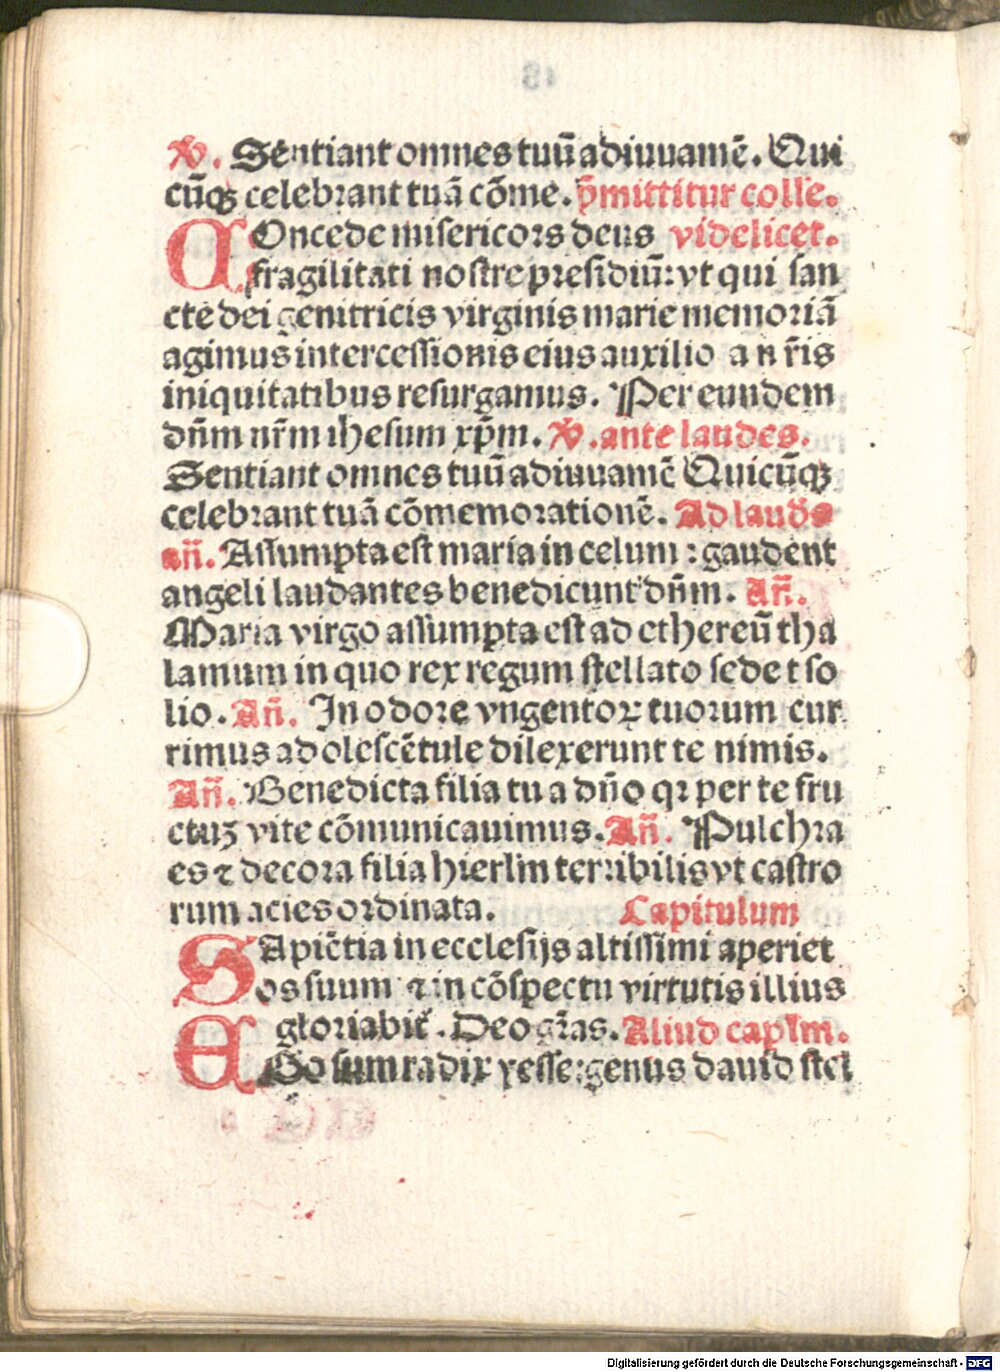 V. Sentiant omnes tuū adiuuamē. Qui
cūqꝫ celebrant tuā cōme. p̄mittitur colle.
COncede misericors deus videlicet.
fragilitati nostre presidiū: vt qui san
cte dei genitricis virginis marie memoriā
agimus intercessionis eius auxilio a nr̄is
iniquitatibus resurgamus. Per eundem
dn̄m nr̄m ihesum xp̄m. V. ante laudes.
Sentiant omnes tuū adiuuamē Quicūqꝫ
celebrant tuā cōmemorationē. Ad laudes
an̄. Assumpta est maria in celum : gaudent
angeli laudantes benedicunt dn̄m. An̄.
Maria virgo assumpta est ad ethereū tha
lamum in quo rex regum stellato sedet so
lio. An̄. In odore vngentoꝝ tuorum cur
rimus adolescētule dilexerunt te nimis.
An̄. Benedicta filia tu a dn̄o qꝛ per te fru
ctuꝫ vite cōmunicauimus. An̄. Pulchra
es ⁊ decora filia hierlm̄ terribilis vt castro
rum acies ordinata. Capitulum
SApiētia in ecclesijs altissimi aperiet
os suum ⁊ in cōspectu virtutis illius
gloriabit᷑. Deo gr̄as. Aliud caplm̄.
EGo sum radix yesse: genus dauid stel
Digitalisierung gefördert durch die Deutsche Forschungsgemeinschaft - DFG